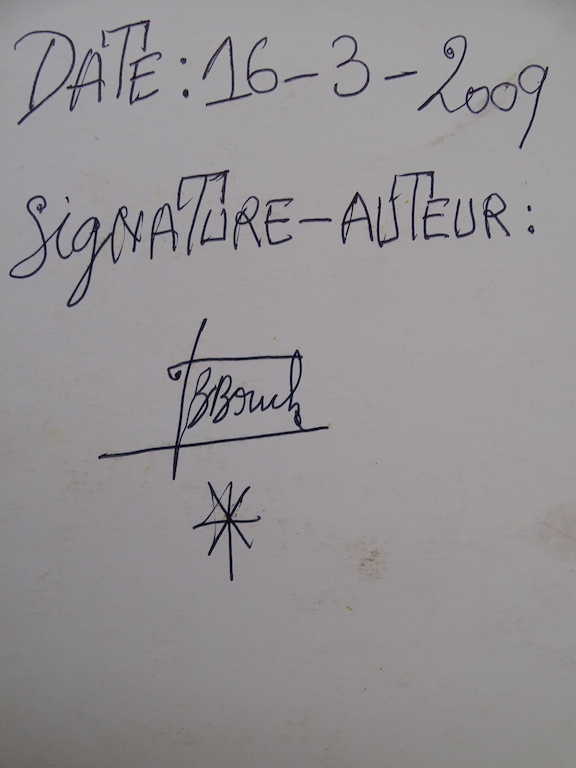 DATE: 16-3-2009
SIGNATURE-AUTEUR:
B.Bouch